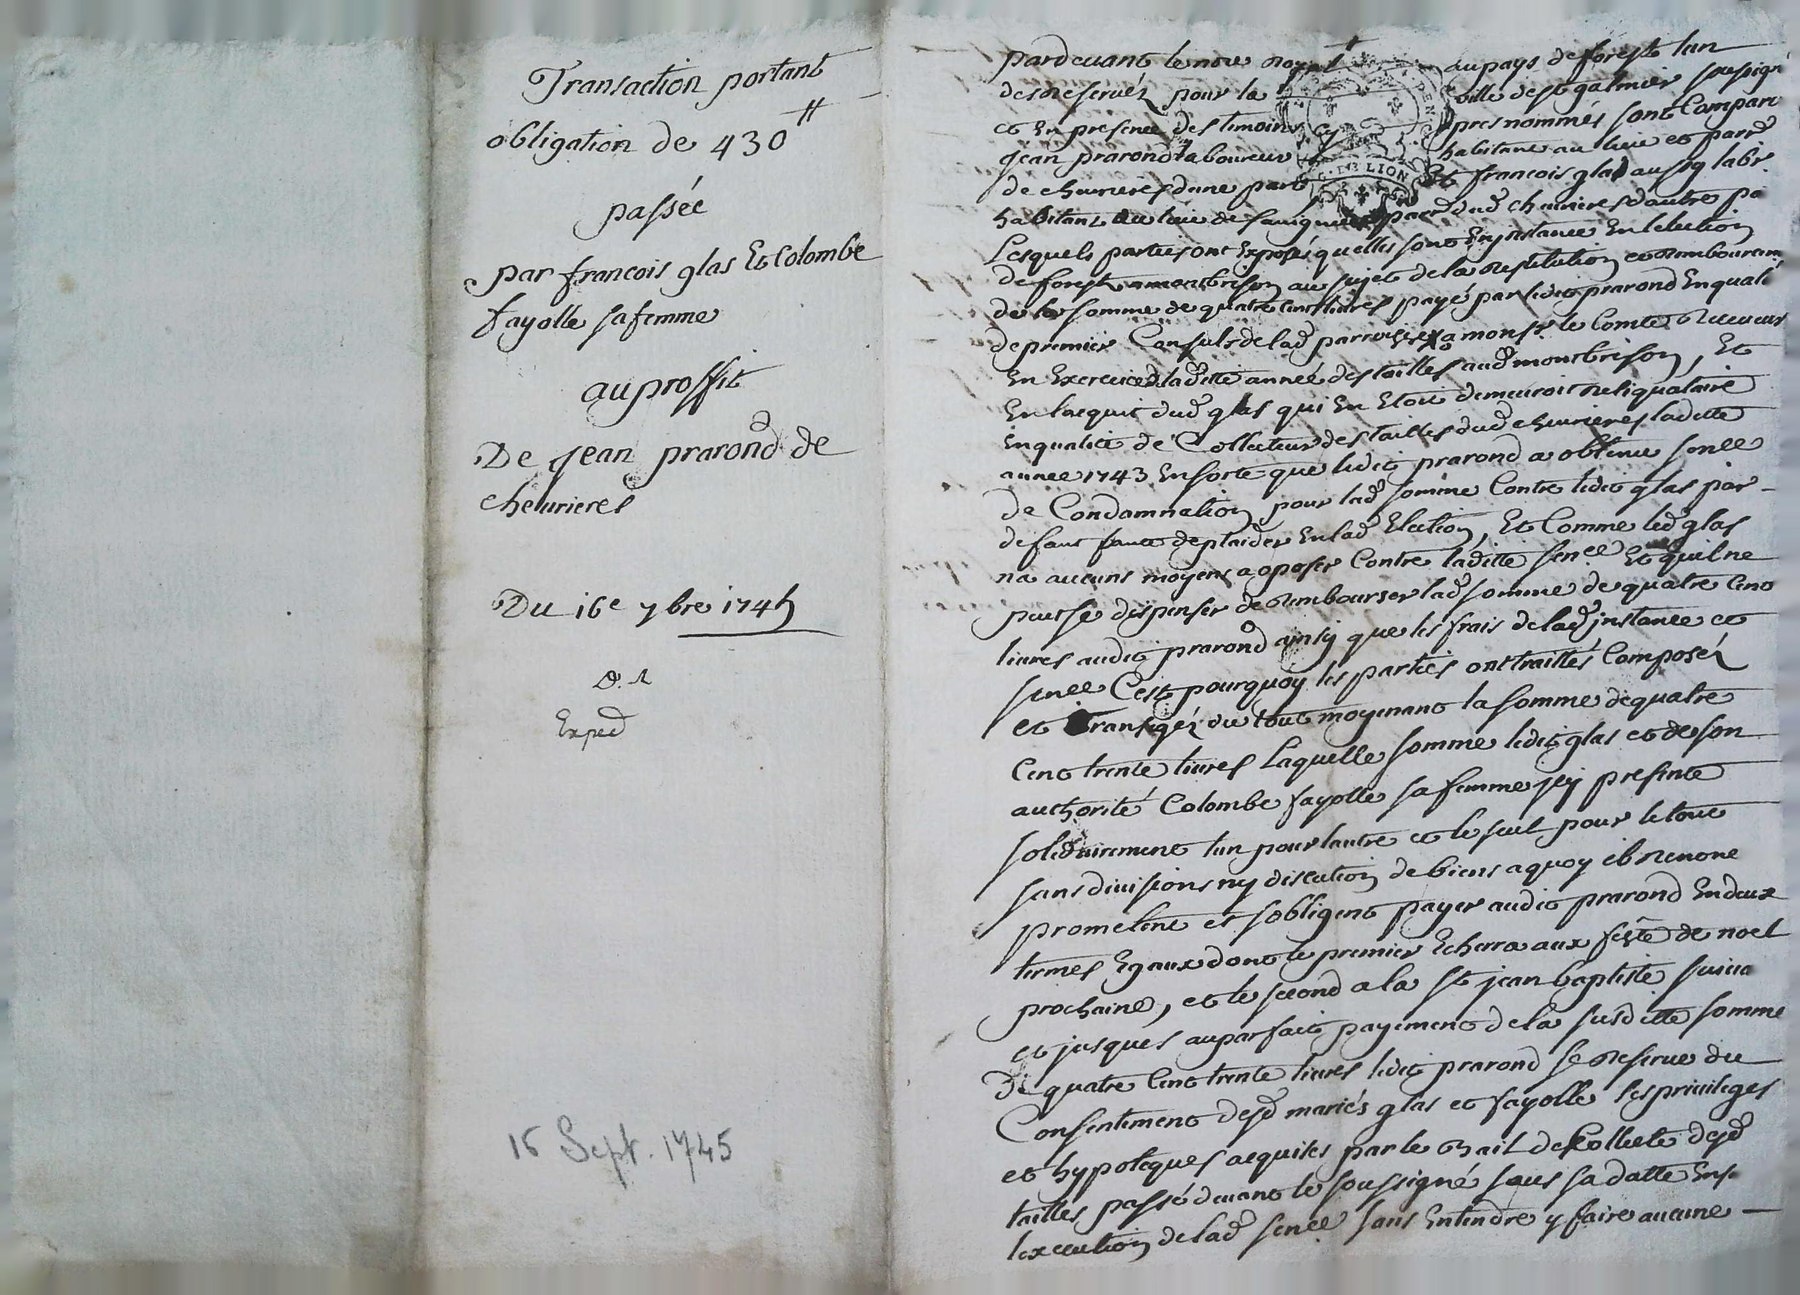 Transaction portant
obligation de 430 ₶
passée
par francois glas Et Colombe
fayolle sa femme
au proffit
De jean prarond de
cheurieres
Du 16e 7bre 1745
Exped
16 Sept. 1745
pardeuant le nore royal au pays de forest lun
des reserués pour la ville de st galmier soussigné
et En presence des temoins cy apres nommés sont Comparu
jean prarond laboureur habitant au lieu et parr
de cheurieres dune part Et francois glas aussy labr
habitant du lieu de parr dud cheurieres dautre pa
Lesquels parties ont Exposé quelles sont En jnstance En lelection
de forest a montbrison au sujet de la restitution et remboursem
de la somme de quatre cent liures payé par ledit prarond En quali
de premier Consul de lad parroisse a monsr le Comte receueur
En Exercice laditte année des tailles aud montbrison, Et
En lacquit dud glas qui En Etoit demeuroit reliquataire
En qualité de Collecteur des tailles dud cheurieres laditte
année 1743 En sorte que ledit prarond a obtenu senee
de Condamnation pour lad somme Contre ledit glas par
defaut faute de plaider En lad Election, Et Comme led glas
na aucuns moyens a oposer Contre laditte senee Et quil ne
peut se dispenser de rembourser lad somme de quatre cent
liures audit prarond ainsy que les frais de lad jnstance et
senee C'est pourquoy les parties ont traittés Composés
et transigés du tout moyenant la somme de quatre
Cent trente liures Laquelle somme ledit glas et de son
authorité Colombe fayolle sa femme jcy presente
solidairement lun pour lautre et le seul pour le tout
sans diuisions ny discution de biens a quoy ils renone
prometent et sobligent payer audit prarond En deux
termes Egaux dont le premier Echerra aux feste de noel
prochaine, et le second a la st jean baptiste suiua
et jusques au parfait payement de la susditte somme
De quatre Cent trente liures ledit prarond se reserue du
Consentement desd mariés glas et fayolle les priuileges
et hypoteques acquises par le Bail de Collecte desd
tailles passé deuant le soussigné sous sa datte Ens
lexecution de lad senee sans Entendre y faire aucune